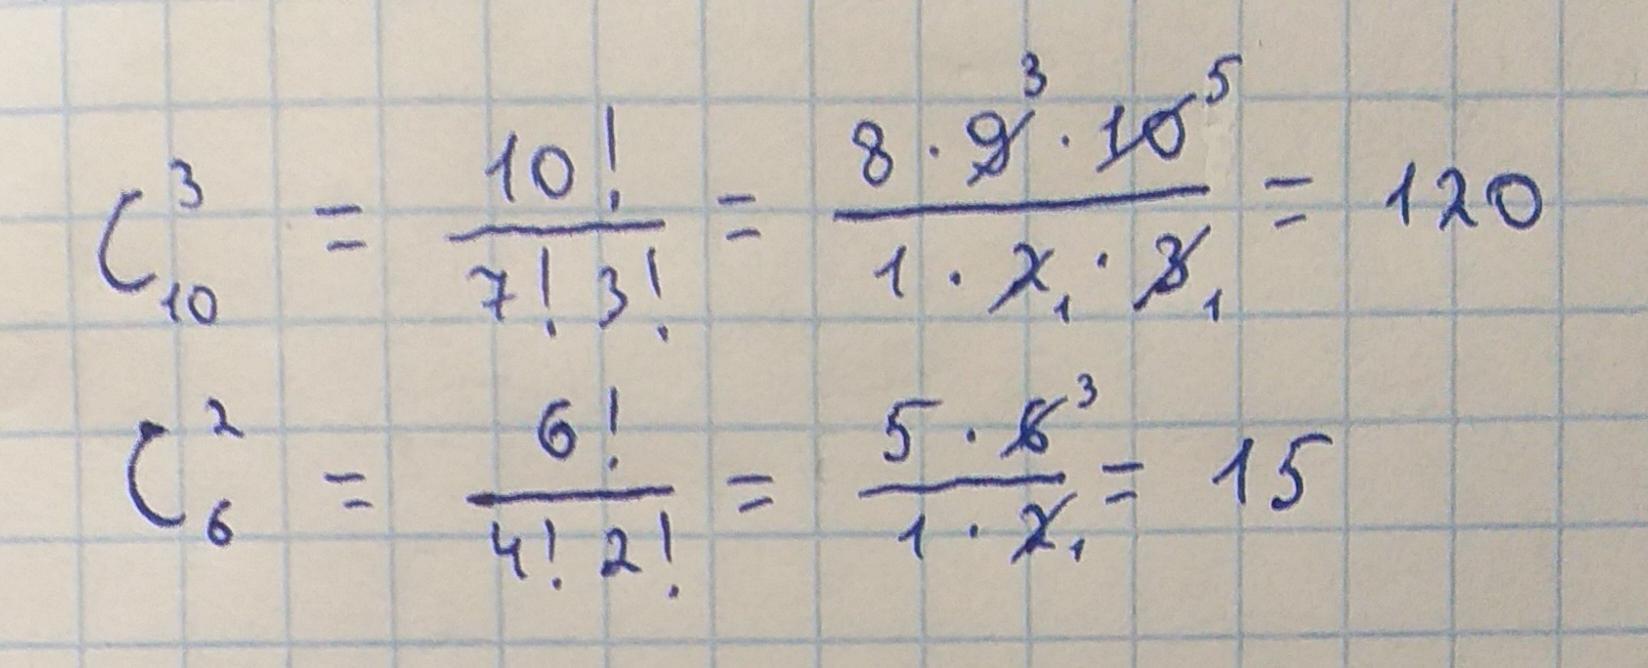 C₁₀³ = 10! / 7! 3! = 8 · 9³ · 10⁵ / 1 · 2₁ · 3₁ = 120
C₆² = 6! / 4! 2! = 5 · 6³ / 1 · 2₁ = 15